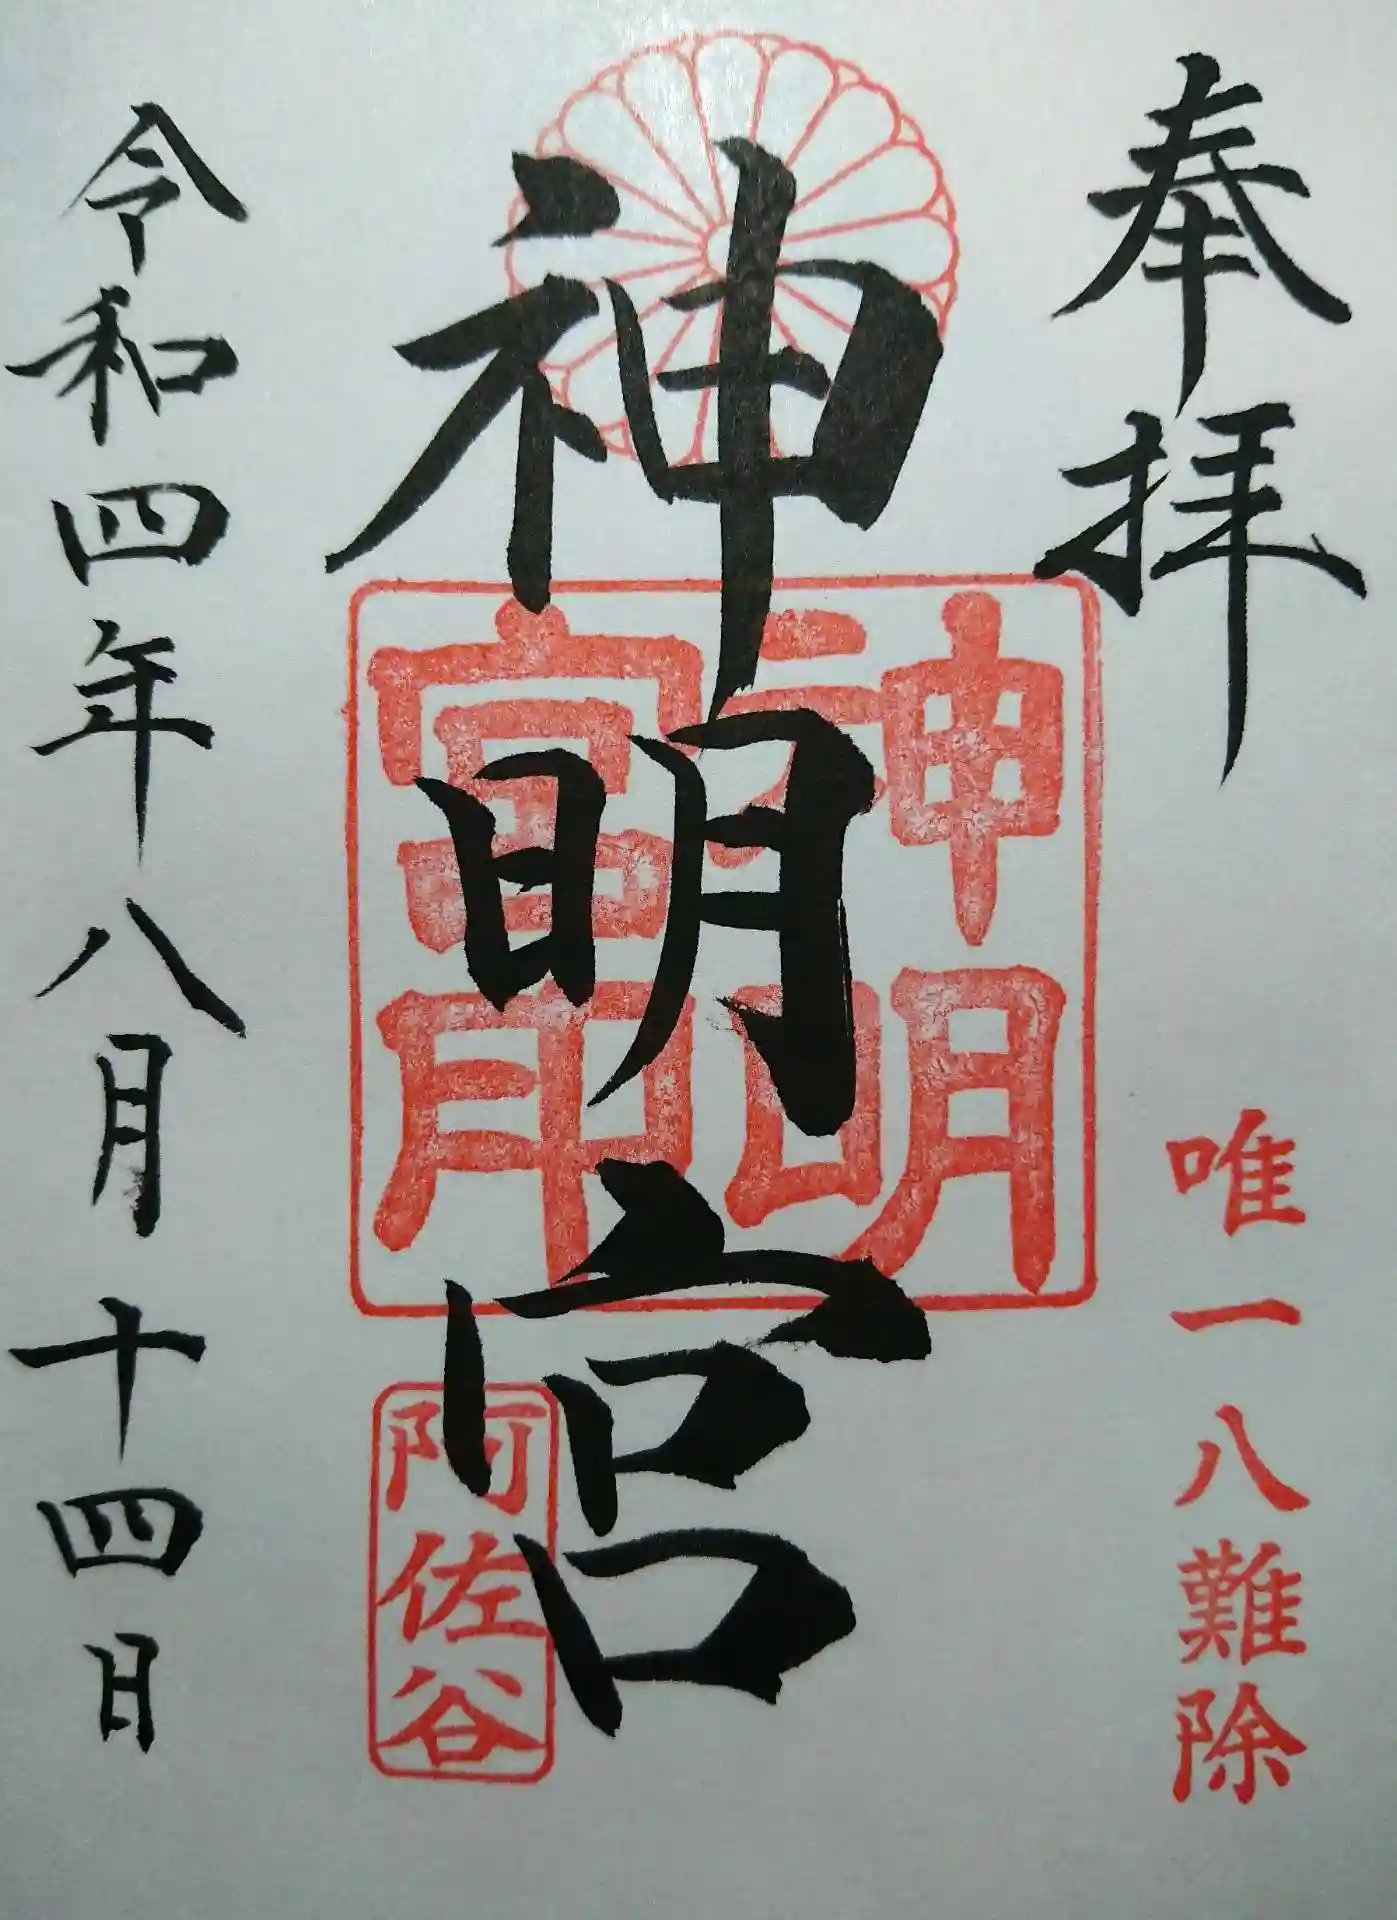 奉拝
唯一八難除
神明宮
神明
宮印
阿佐谷
令和四年八月十四日